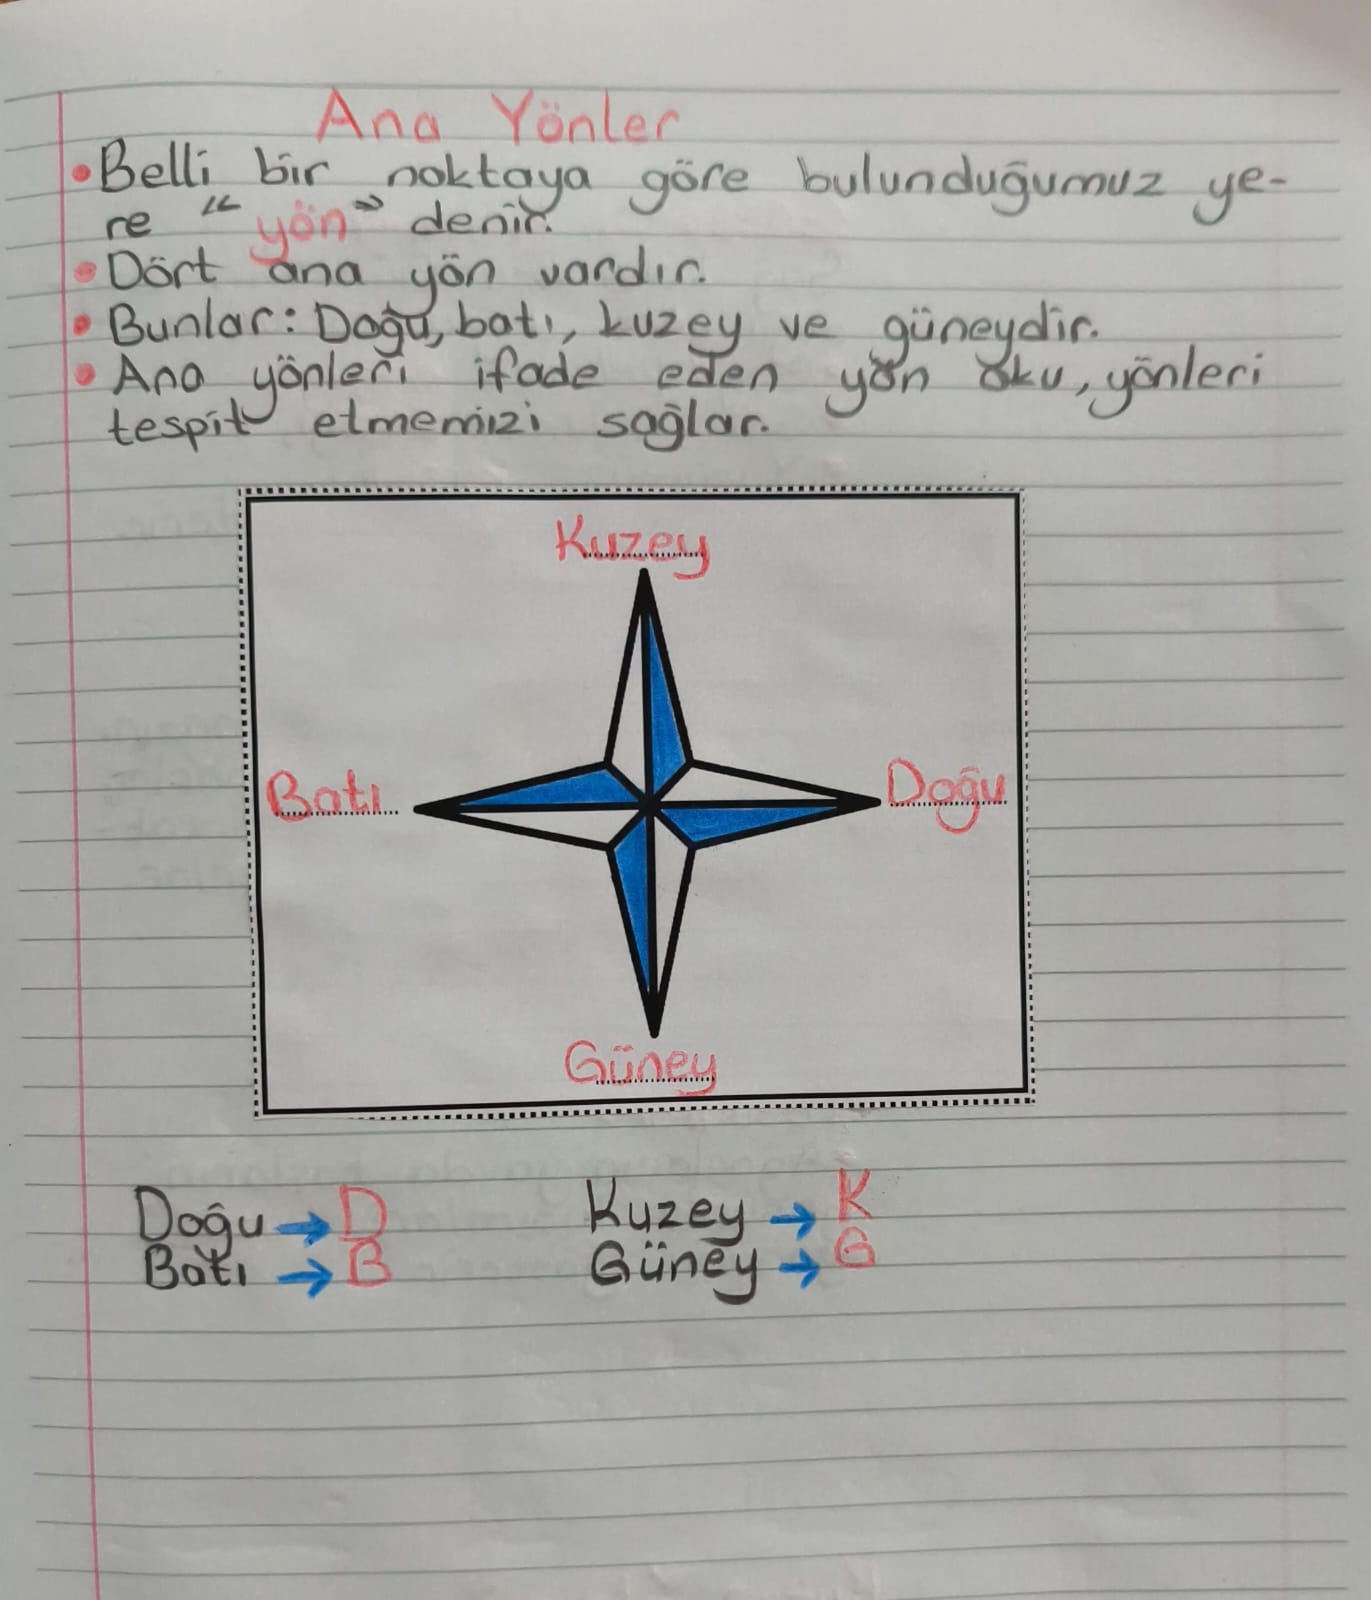 Ana Yönler
• Belli bir noktaya göre bulunduğumuz ye-
re "yön" denir.
• Dört ana yön vardır.
• Bunlar: Doğu, batı, kuzey ve güneydir.
• Ana yönleri ifade eden yön oku, yönleri
tespit etmemizi sağlar.
Kuzey
Batı
Doğu
Güney
Doğu → D
Kuzey → K
Batı → B
Güney → G